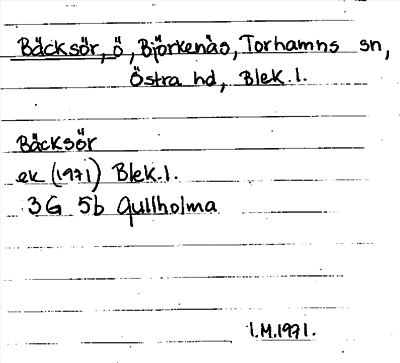 Bäcksör, ö, Björkenäs, Torhamns sn,
Östra hd, Blek.l.
Bäcksör
ek (1971) Blek.l.
3G 5b Gullholma
I.M.1971.